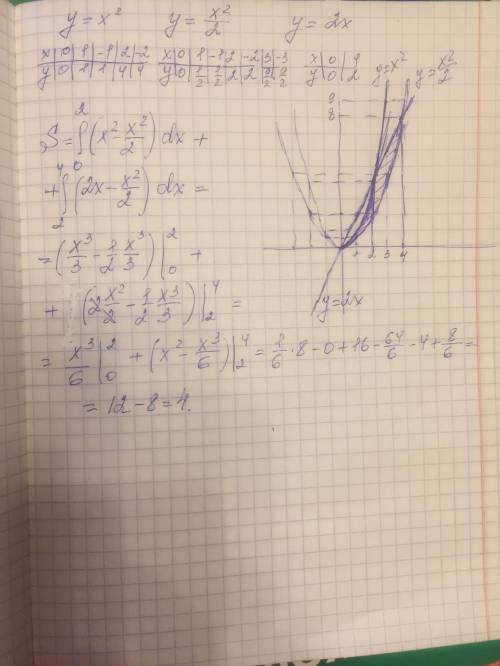 y = x² y = x²/2 y = 2x
x | 0 | 1 | -1 | 2 | -2 x | 0 | 1 | -1 | 2 | -2 | 3 | -3 x | 0 | 1
y | 0 | 1 | 1 | 4 | 4 y | 0 | 1/2 | 1/2 | 2 | 2 | 9/2 | 9/2 y | 0 | 2
y=x² y=x²/2
9
8
1 2 3 4
y=2x
S = ∫₀² (x² - x²/2) dx +
+ ∫₂⁴ (2x - x²/2) dx =
= (x³/3 - 1/2 x³/3) |₀² +
+ (2 x²/2 - 1/2 x³/3) |₂⁴ =
= x³/6 |₀² + (x² - x³/6) |₂⁴ = 1/6 · 8 - 0 + 16 - 64/6 - 4 + 8/6 =
= 12 - 8 = 4.